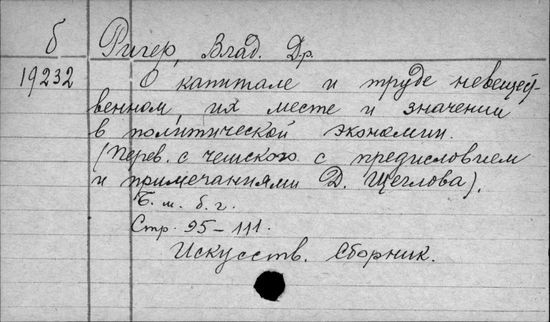 б Ригер, Влад. Др.
19232 О капитале и труде невещест-
венном, их месте и значении
в политической экономии.
(Перев. с чешского с предисловием
и примечаниями Д. Щеглова).
Б. м. б. г.
Стр. 95-111.
Искусств. Сборник.